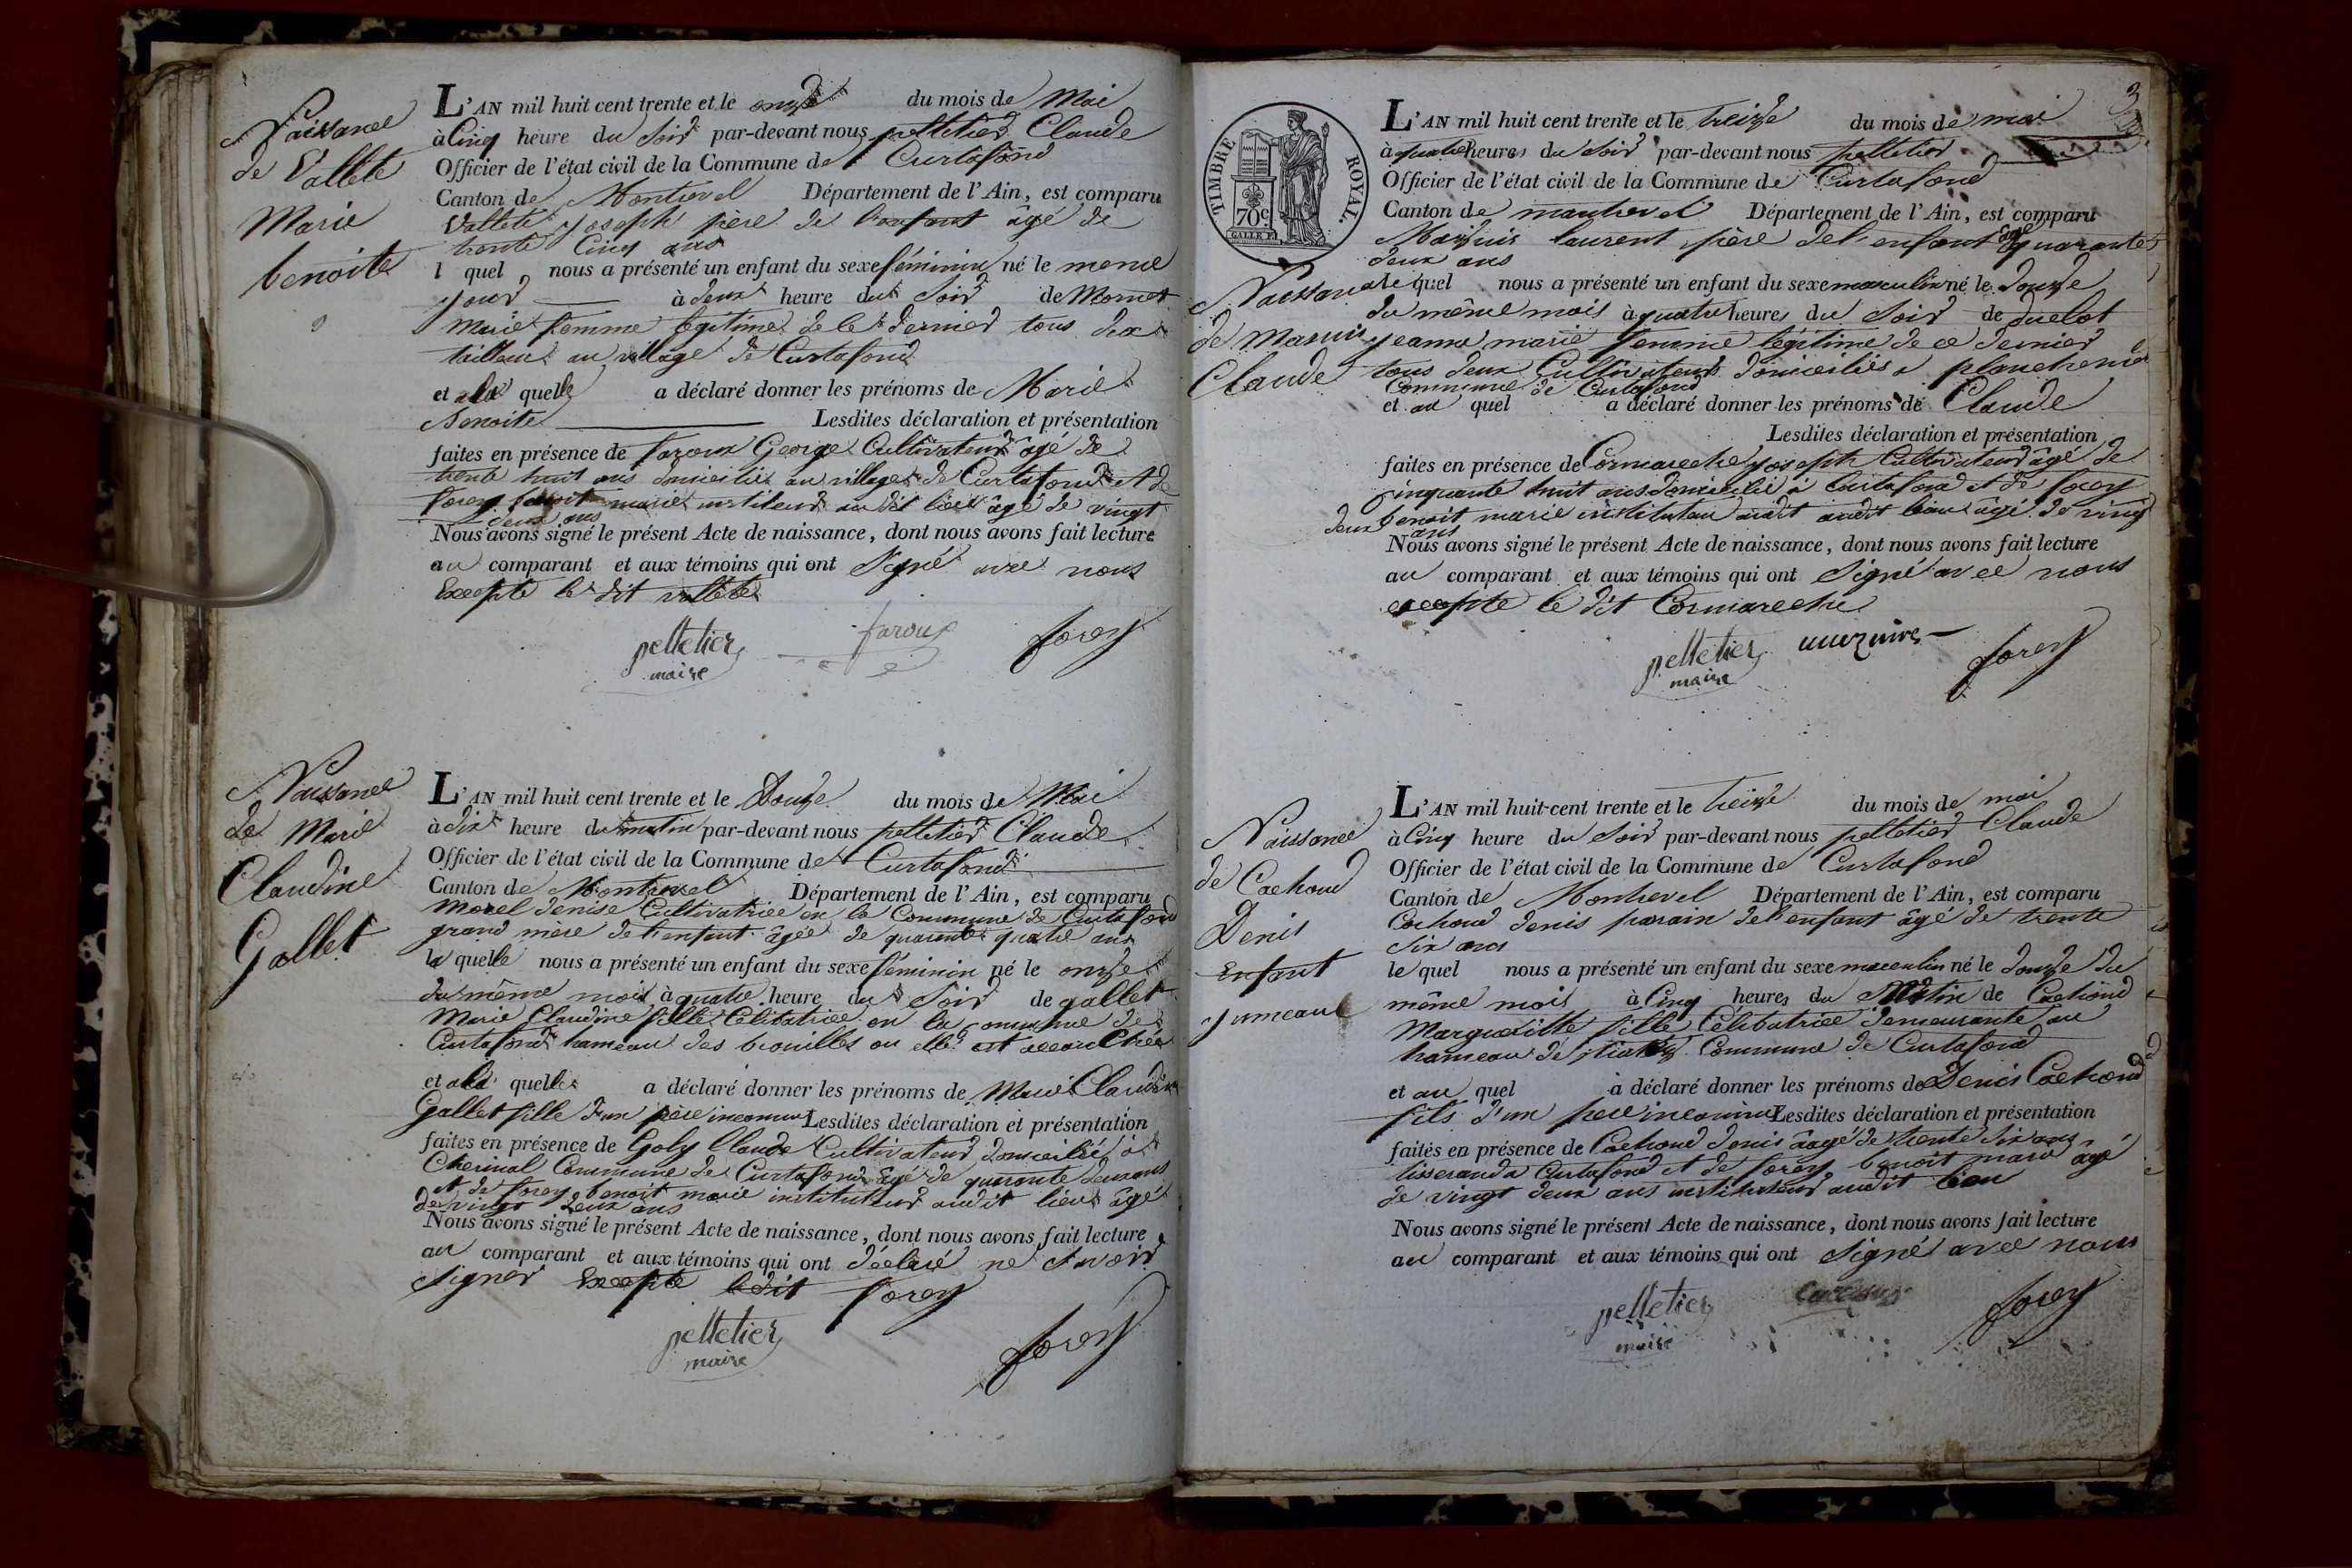 Naissance
de Vallete
Marie
benoite
L'AN mil huit cent trente et le onze du mois de Mai
à Cinq heure du Soir par-devant nous pelletier Claude
Officier de l'état civil de la Commune de Curtafond
Canton de Montrevel Département de l'Ain, est comparu
Vallete joseph père de l'enfant âgé de
trente Cinq ans
l quel nous a présenté un enfant du sexe féminin né le meme
jour à deux heure du Soir de Mornet
Marie femme légitime de le dernier tous deux
tailleur au village de Curtafond
et a la quelle a déclaré donner les prénoms de Marie
Benoite Lesdites déclaration et présentation
faites en présence de faroux George Cultivateur âgé de
trente huit ans domicilié au village de Curtafond et de
forey benoit marie instituteur au dit lieu âgé de vingt
deux ans
Nous avons signé le présent Acte de naissance, dont nous avons fait lecture
au comparant et aux témoins qui ont Signé avec nous
Excepté le dit vallete
pelletier faroux forey
maire
Naissance
de Marie
Claudine
Gallet
L'AN mil huit cent trente et le Douze du mois de Mai
à dix heure du matin par-devant nous pelletier Claude
Officier de l'état civil de la Commune de Curtafond
Canton de Montrevel Département de l'Ain, est comparu
Morel denise Cultivatrice en la Commune de Curtafond
grand mere de l'enfant âgée de quarante quatre ans
la quelle nous a présenté un enfant du sexe féminin né le onze
du même mois à quatre heure du Soir de gallet
Marie Claudine fille Célibatrice en la Commune de
Curtafond hameau des brouilles ou elle est accouchée
et a la quelle a déclaré donner les prénoms de Marie Claudine
Gallet fille d'un père inconnu Lesdites déclaration et présentation
faites en présence de Goly Claude Cultivateur domicilié à
Cherinal Commune de Curtafond âgé de quarante deux ans
et de forey benoit marie instituteur audit lieu âgé
de vingt deux ans
Nous avons signé le présent Acte de naissance, dont nous avons fait lecture
au comparant et aux témoins qui ont déclaré ne savoir
Signer Excepté ledit forey
pelletier forey
maire
3
TIMBRE ROYAL.
70c
GALLE F.
Naissance
de Marguis
Claude
L'AN mil huit cent trente et le treize du mois de mai
à quatre heures du Soir par-devant nous pelletier
Officier de l'état civil de la Commune de Curtafond
Canton de montrevel Département de l'Ain, est comparu
laurent père de l'enfant âgé quarante
deux ans
le quel nous a présenté un enfant du sexe masculin né le Douze
du même mois à quatre heures du Soir de duclot
jeanne marie femme légitime de ce dernier
tous deux Cultivateurs domiciliés a
Commune de Curtafond
et au quel a déclaré donner les prénoms de Claude
Lesdites déclaration et présentation
faites en présence de Cormareche joseph Cultivateur âgé de
cinquante huit ans domicilié à Curtafond et de forey
benoit marie instituteur audit lieu âgé de vingt
deux ans
Nous avons signé le présent Acte de naissance, dont nous avons fait lecture
au comparant et aux témoins qui ont Signé avec nous
excepté le dit Cormareche
pelletier forey
maire
Naissance
de Cachoud
Denis
Enfant
jumeau
L'AN mil huit cent trente et le treize du mois de mai
à Cinq heure du Soir par-devant nous pelletier Claude
Officier de l'état civil de la Commune de Curtafond
Canton de Montrevel Département de l'Ain, est comparu
Cachoud denis parain de l'enfant âgé de trente
Six ans
le quel nous a présenté un enfant du sexe masculin né le douze du
même mois à Cinq heures du Matin de Cachoud
Margueritte fille Célibatrice demeurante au
hameau de Commune de Curtafond
et au quel a déclaré donner les prénoms de Denis Cachoud
fils d'un pere inconnu Lesdites déclaration et présentation
faites en présence de Cachoud denis âagé de trente Six ans
tisserand a Curtafond et de forey benoit marie âgé
de vingt deux ans instituteur audit lieu
Nous avons signé le présent Acte de naissance, dont nous avons fait lecture
au comparant et aux témoins qui ont Signé avec nous
pelletier forey
maire